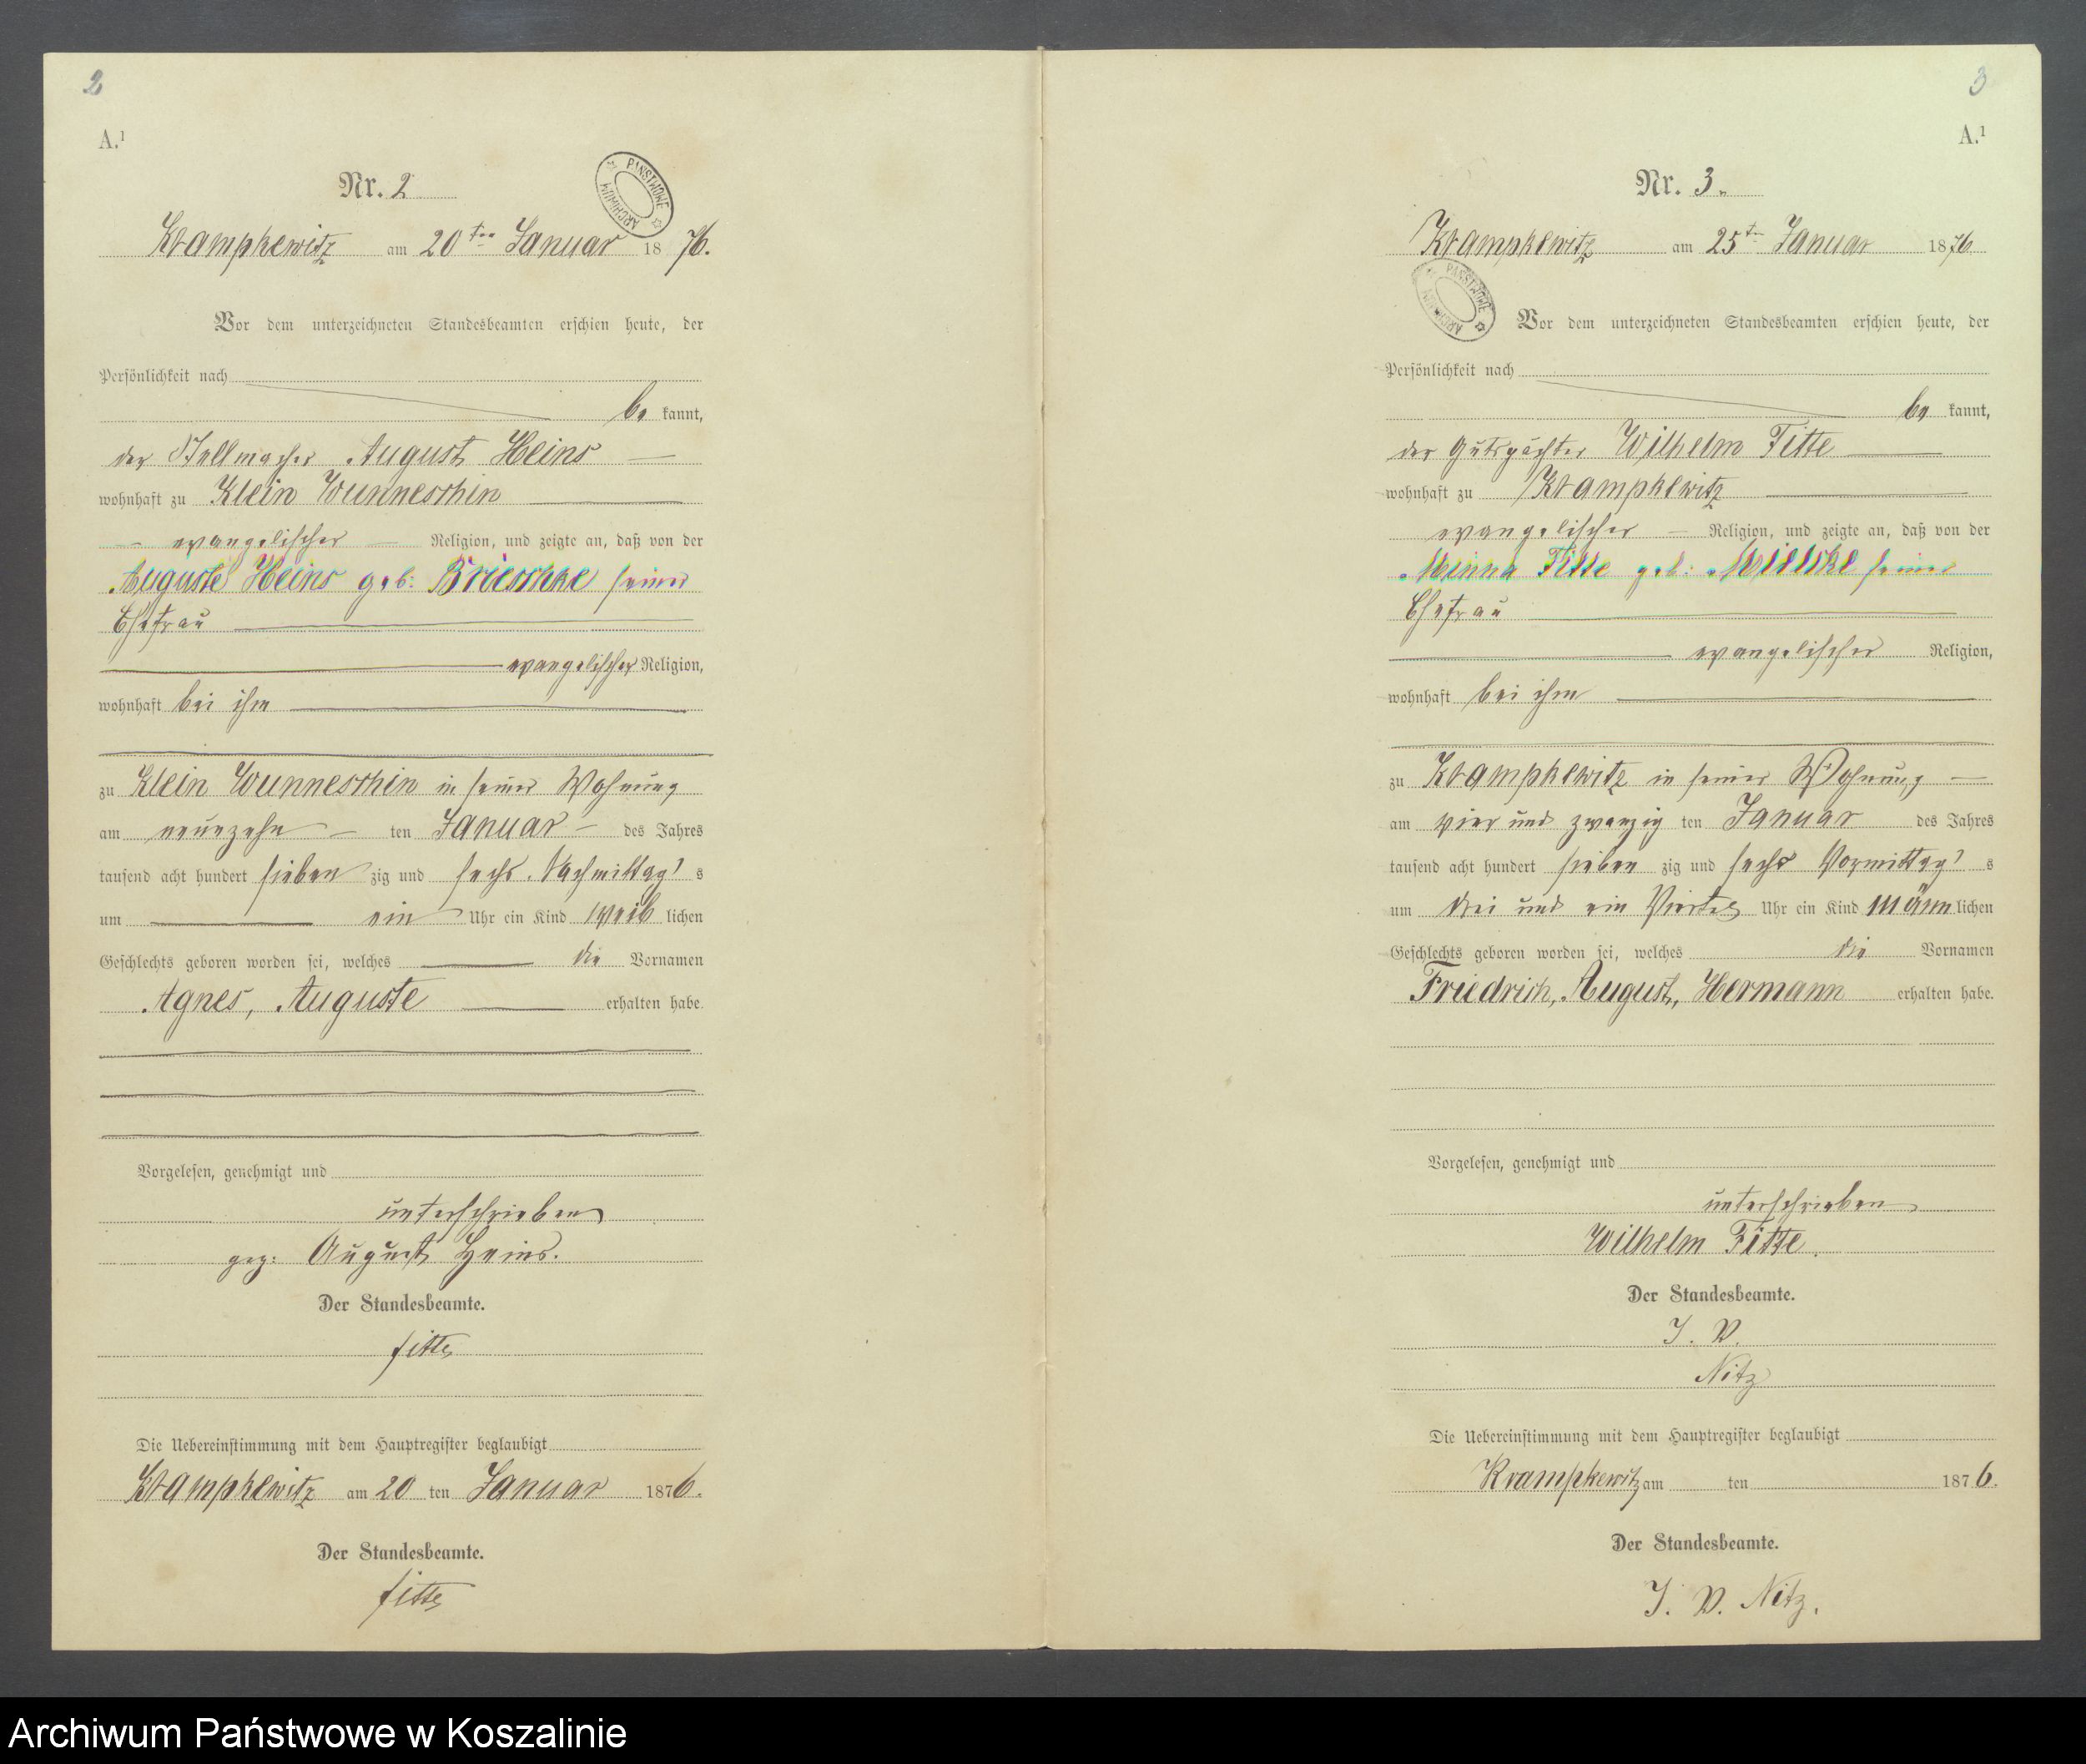 2
A.¹
Nr. 2
PAŃSTWOWE ARCHIWUM
Krampkewitz am 20ten Januar 1876.
Vor dem unterzeichneten Standesbeamten erschien heute, der
Persönlichkeit nach
be kannt,
der Stellmacher August Heins
wohnhaft zu Klein Wunneschin
evangelischer Religion, und zeigte an, daß von der
Auguste Heins geb: Brieschke seiner
Ehefrau
evangelischer Religion,
wohnhaft bei ihm
zu Klein Wunneschin in seiner Wohnung
am neunzehn ten Januar des Jahres
tausend acht hundert sieben zig und sechs Nachmittag s
um ein Uhr ein Kind weib lichen
Geschlechts geboren worden sei, welches die Vornamen
Agnes, Auguste erhalten habe.
Vorgelesen, genehmigt und
unterschrieben
gez: August Heins.
Der Standesbeamte.
Fitte
Die Uebereinstimmung mit dem Hauptregister beglaubigt
Krampkewitz am 20 ten Januar 1876.
Der Standesbeamte.
Fitte
3
A.¹
Nr. 3.
Krampkewitz am 25ten Januar 1876
PAŃSTWOWE ARCHIWUM
Vor dem unterzeichneten Standesbeamten erschien heute, der
Persönlichkeit nach
be kannt,
der Gutspächter Wilhelm Fitte
wohnhaft zu Krampkewitz
evangelischer Religion, und zeigte an, daß von der
Minna Fitte geb: Mielcke seiner
Ehefrau
evangelischer Religion,
wohnhaft bei ihm
zu Krampkewitz in seiner Wohnung
am vier und zwanzig ten Januar des Jahres
tausend acht hundert sieben zig und sechs Vormittag s
um drei und ein Viertel Uhr ein Kind männ lichen
Geschlechts geboren worden sei, welches die Vornamen
Friedrich, August, Hermann erhalten habe.
Vorgelesen, genehmigt und
unterschrieben
Wilhelm Fitte.
Der Standesbeamte.
J. V.
Nitz
Die Uebereinstimmung mit dem Hauptregister beglaubigt
Krampkewitz am ten 1876.
Der Standesbeamte.
J. V. Nitz.
Archiwum Państwowe w Koszalinie